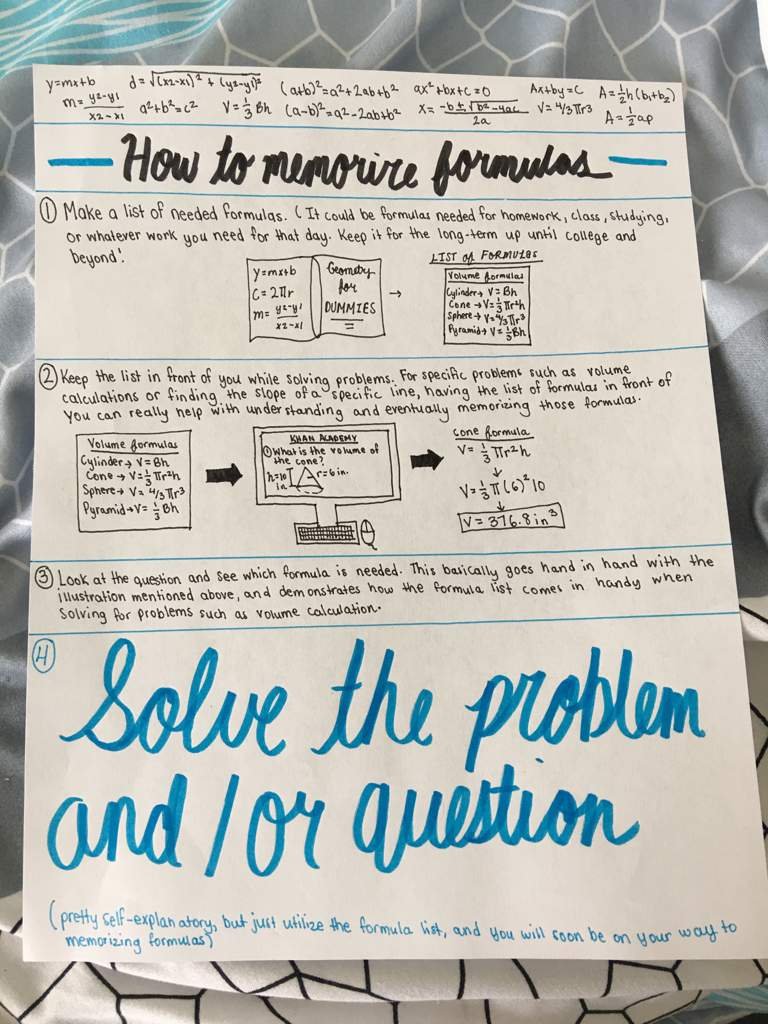 y=mx+b d=√(x2-x1)²+(y2-y1)² (a+b)²=a²+2ab+b² ax²+bx+c=0 Ax+by=C A=½h(b1+b2)
m=y2-y1/x2-x1 a²+b²=c² V=⅓Bh (a-b)²=a²-2ab+b² x=-b±√b²-4ac/2a V=4/3πr3 A=½ap
How to memorize formulas
① Make a list of needed formulas. (It could be formulas needed for homework, class, studying,
or whatever work you need for that day. Keep it for the long-term up until college and
beyond!
y=mx+b
C=2πr
m=y2-y1/x2-x1
Geometry
for
DUMMIES
→
LIST of FORMULAS
Volume formulas
Cylinder→ V=Bh
Cone→V=⅓πr²h
Sphere→ V=4/3πr³
Pyramid→ V=⅓Bh
② Keep the list in front of you while solving problems. For specific problems such as volume
calculations or finding the slope of a specific line, having the list of formulas in front of
you can really help with understanding and eventually memorizing those formulas.
Volume formulas
Cylinder→ V=Bh
Cone→ V=⅓πr²h
Sphere→ V=4/3πr³
Pyramid→V=⅓Bh
KHAN ACADEMY
①What is the volume of
the cone?
h=10 r=6in.
in
cone formula
V=⅓πr²h
↓
V=⅓π(6)²10
↓
V=376.8in³
③ Look at the question and see which formula is needed. This basically goes hand in hand with the
illustration mentioned above, and demonstrates how the formula list comes in handy when
solving for problems such as volume calculation.
④
Solve the problem
and/or question
(pretty self-explanatory, but just utilize the formula list, and you will soon be on your way to
memorizing formulas)